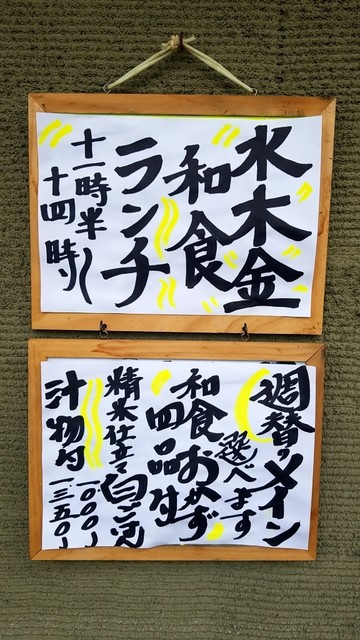 水木金
和食
ランチ
十一時半〜
十四時
週替りメイン
選べます
和食おかず
四品付
精米仕立て白ご飯
汁物付
一〇〇〇
一三五〇